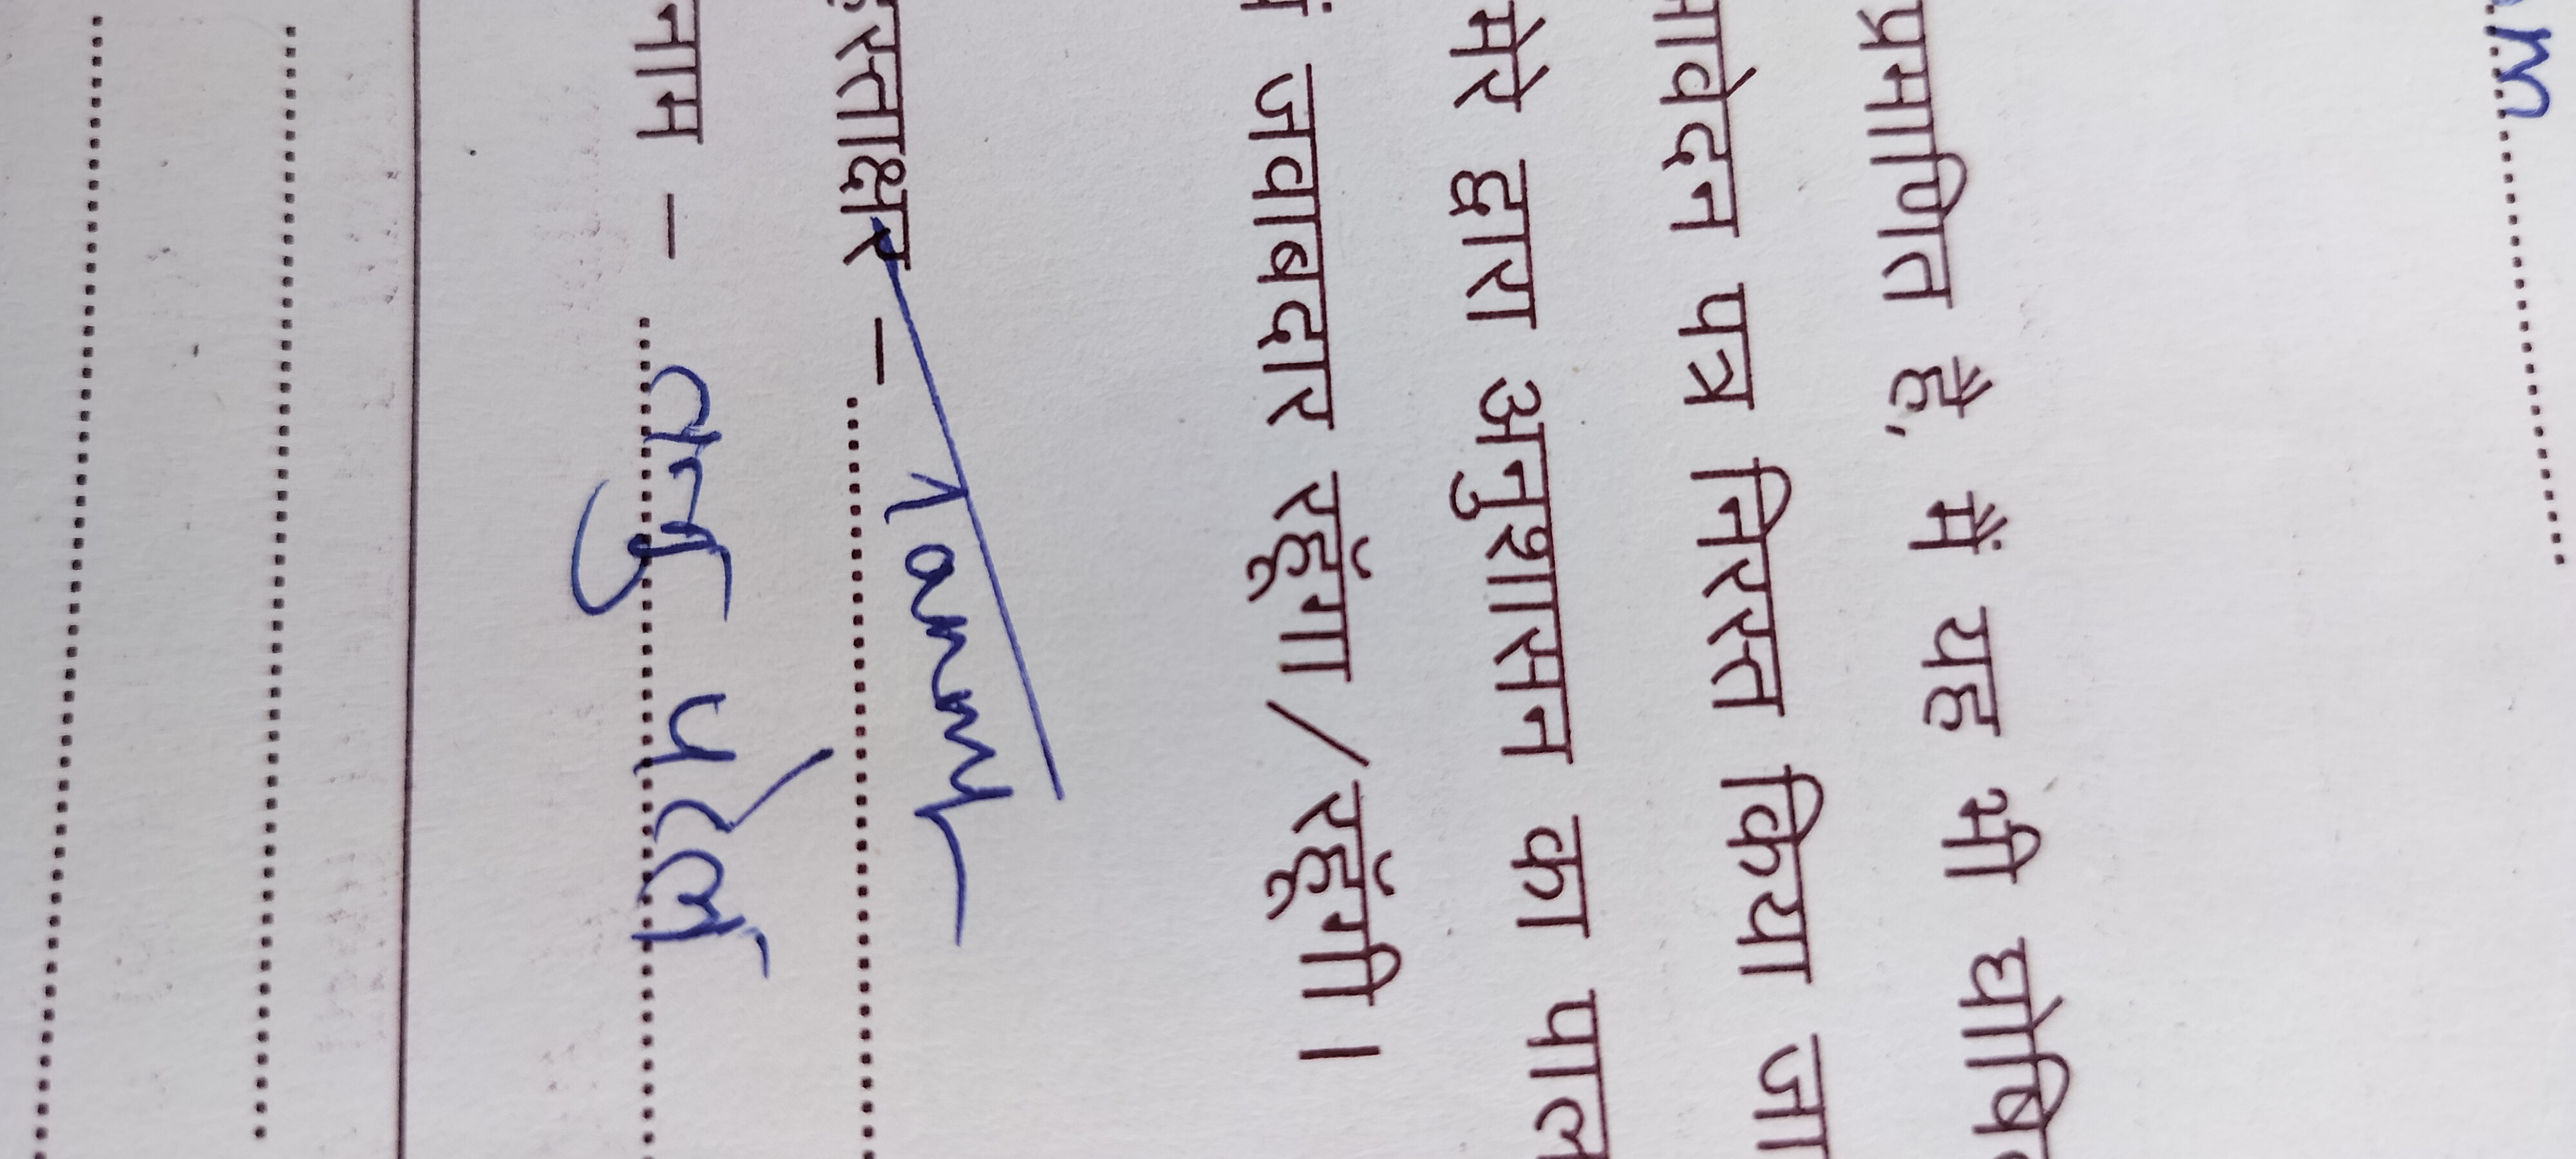 m
प्रमाणित है, मैं यह भी घोषि
आवेदन पत्र निरस्त किया जा
मेरे द्वारा अनुशासन का पाल
जवाबदार रहूंगा / रहूंगी।
हस्ताक्षर – Tanny
नाम – तनु पटेल